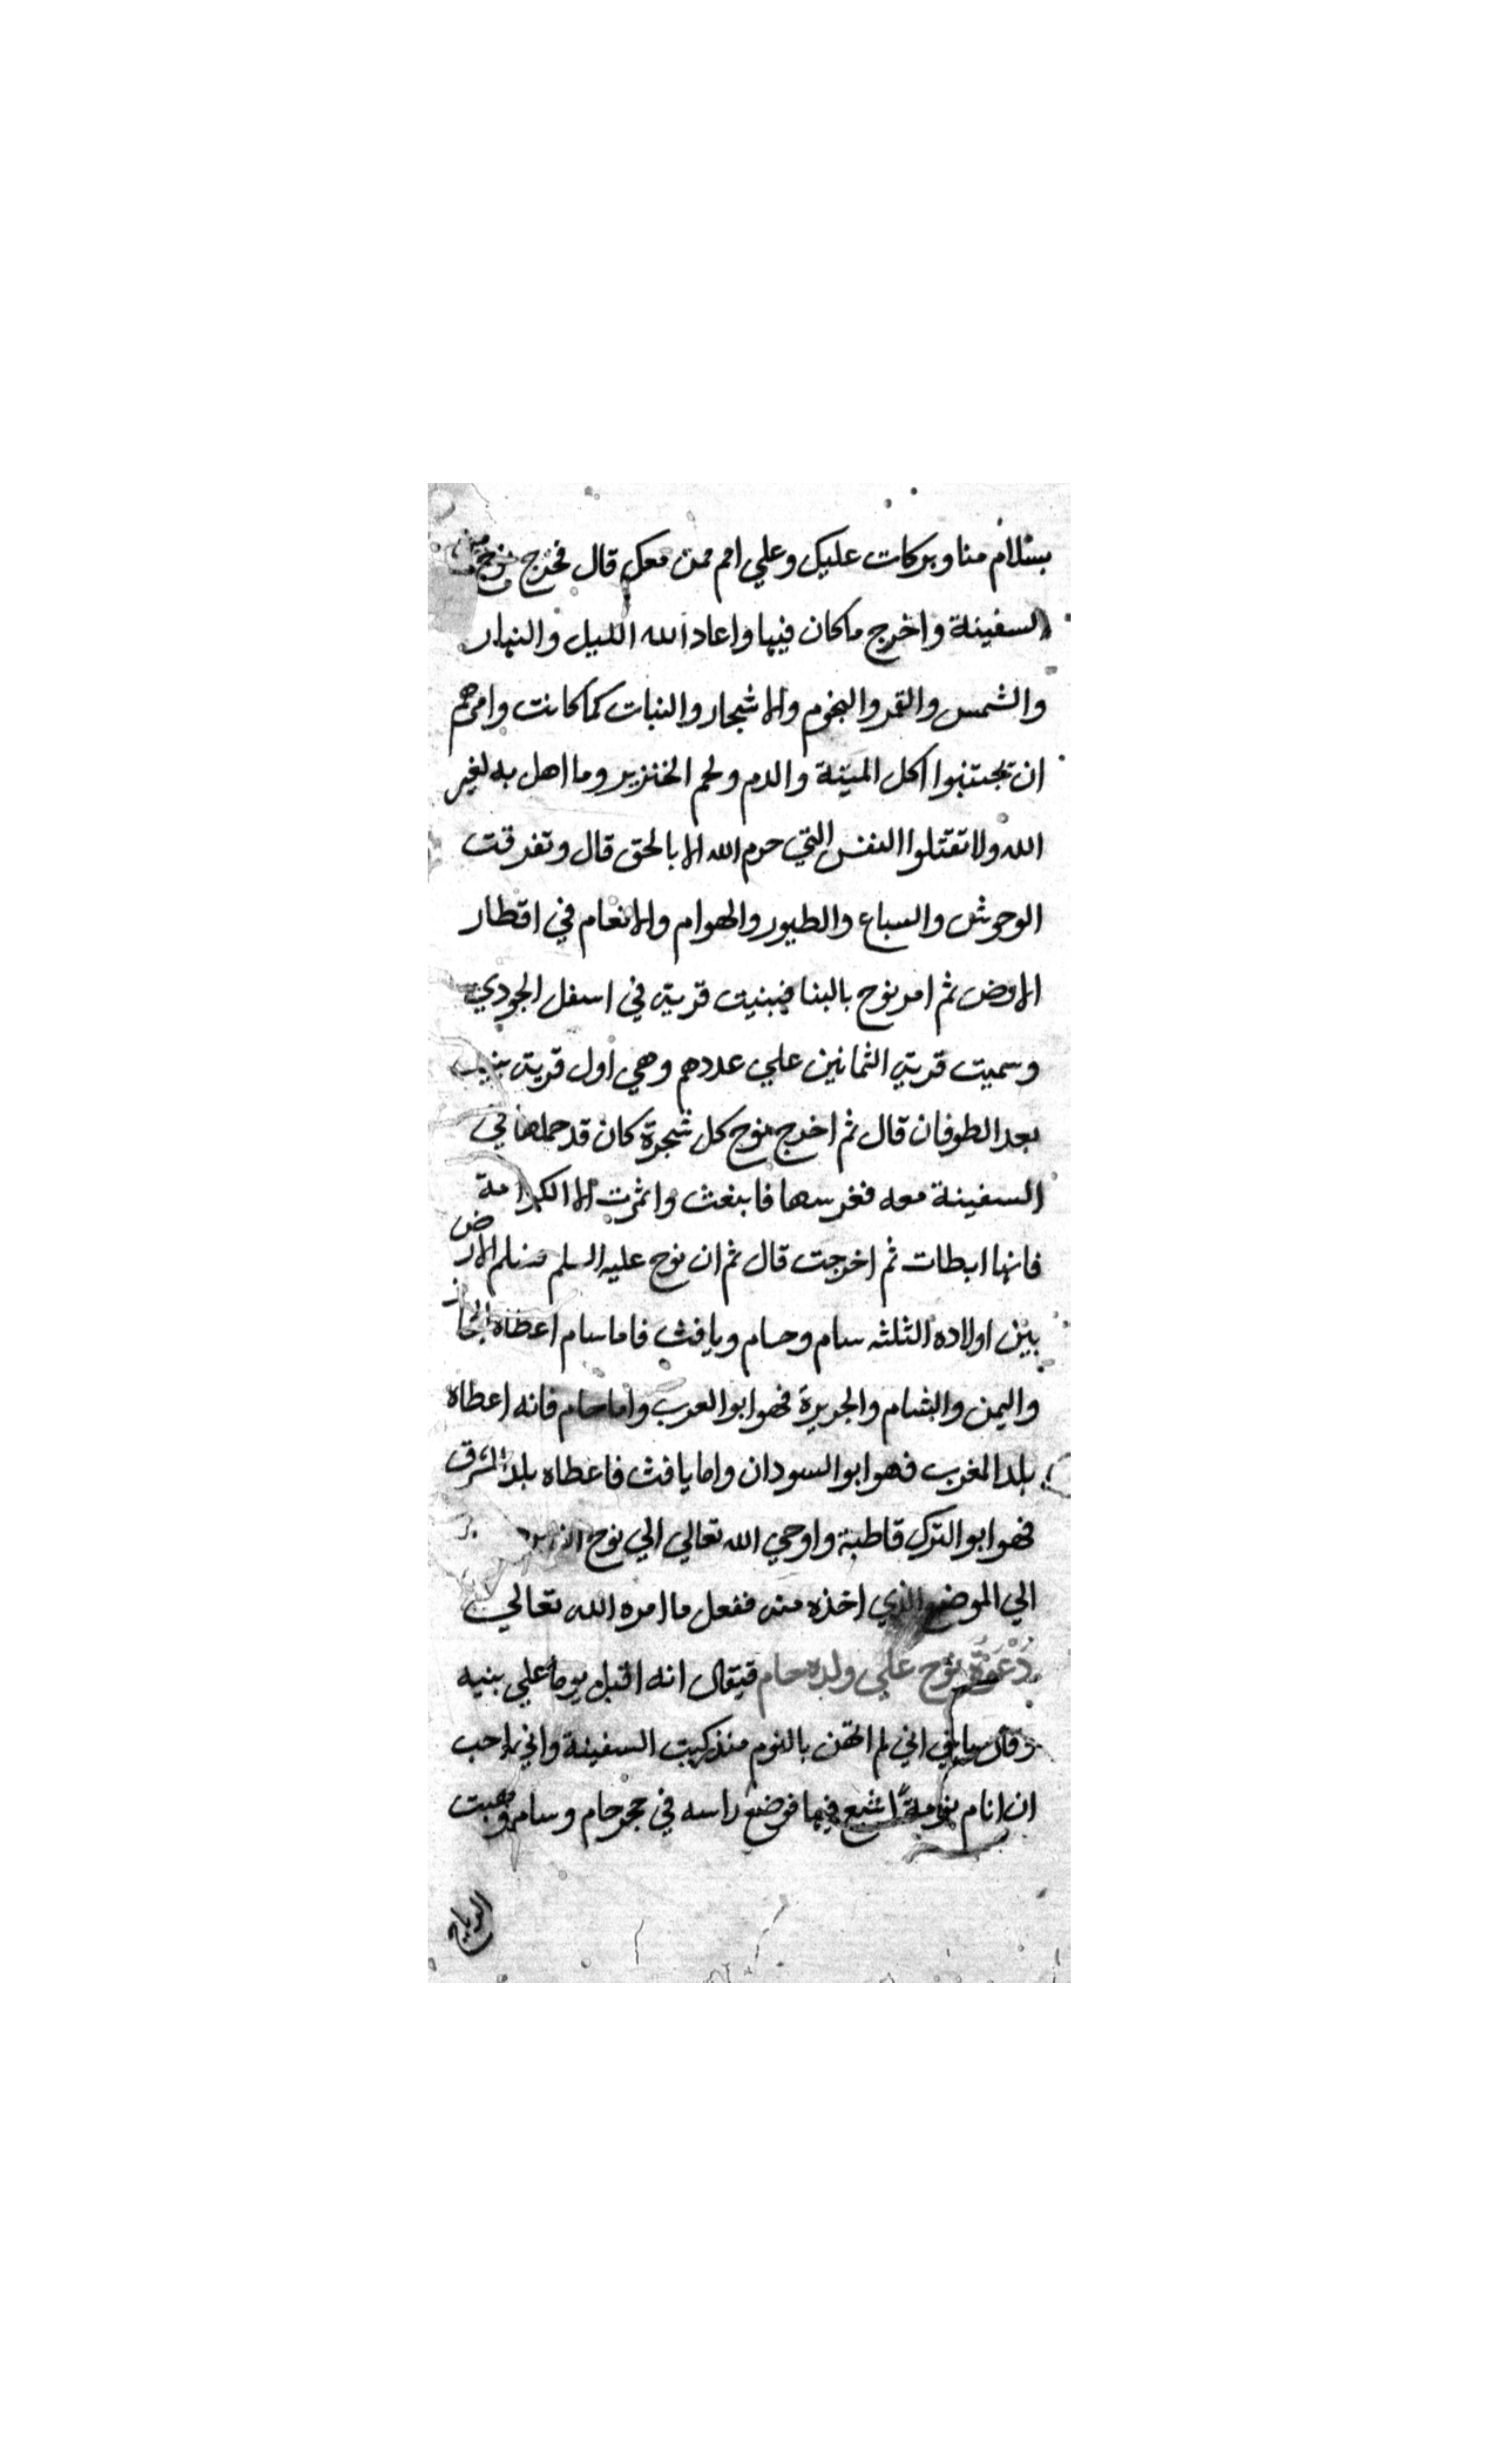 بسلام منا وبركات عليك وعلي امم ممن معك قال فخرج نوح من
السفينة واخرج ماكان فيها واعاد الله الليل والنهار
والشمس والقمر والنجوم والاشجار والنبات كما كانت وامرهم
ان تجتنبوا اكل الميتة والدم ولحم الخنزير وما اهل به لغير
الله ولا تقتلوا النفس التي حرم الله الا بالحق قال وتفرقت
الوحوش والسباع والطيور والهوام والانعام في اقطار
الارض ثم امر نوح بالبنا فبنيت قرية في اسفل الجودي
وسميت قرية الثمانين علي عددهم وهي اول قرية بنيت
بعد الطوفان قال ثم اخرج نوح كل شجرة كان قد حملها في
السفينة معه فغرسها فاينعت واثمرت الا الكرامة
فانها ابطات ثم اخرجت قال ثم ان نوح عليه السلم قسلم الارض
بين اولاده الثلثه سام وحام ويافث فاما سام اعطاه الحجاز
واليمن والشام والجزيرة فهو ابو العرب واما حام فانه اعطاه
بلد المغرب فهو ابو السودان واما يافث فاعطاه بلد المشرق
فهو ابو الترك قاطبة واوحي الله تعالي الي نوح
الي الموضع الذي اخذه منه ففعل ما امره الله تعالي
دعوة نوح علي ولده حام فيقال انه اقبل يوما علي بنيه
وقال يا بني اني لم اتهن بالنوم منذ ركبت السفينة واني احب
ان انام نومة اشبع فيها فوضع راسه في حجر حام وسام وهبت
الرياح